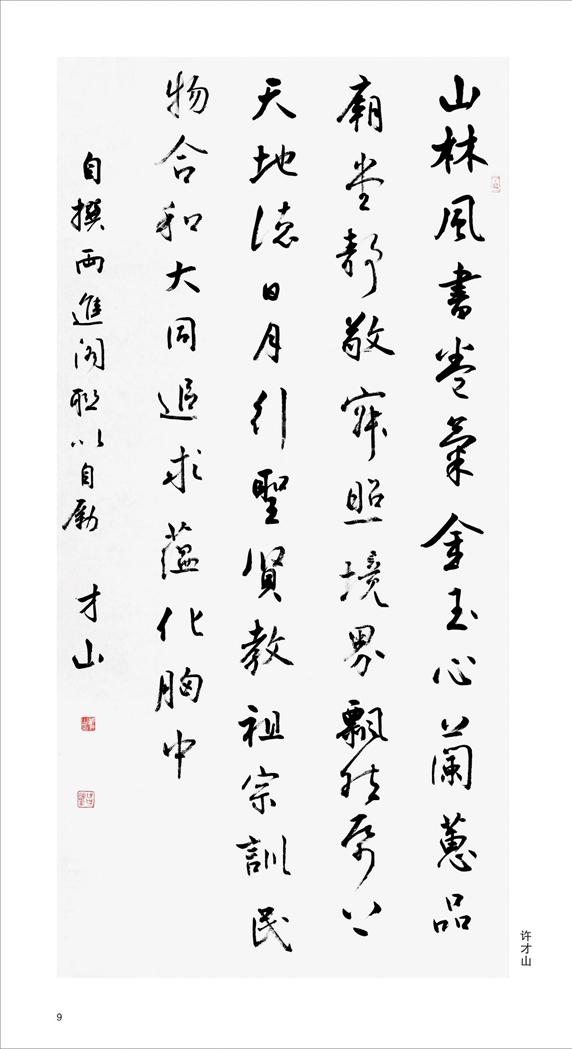 山林風書卷氣金玉心蘭蕙品
廟堂靜敬寂照境界飄然上
天地德日月行聖賢教祖宗訓民
物合和大同追求蘊化胸中
自撰兩進閣聯以自勵 才山
许才山
9